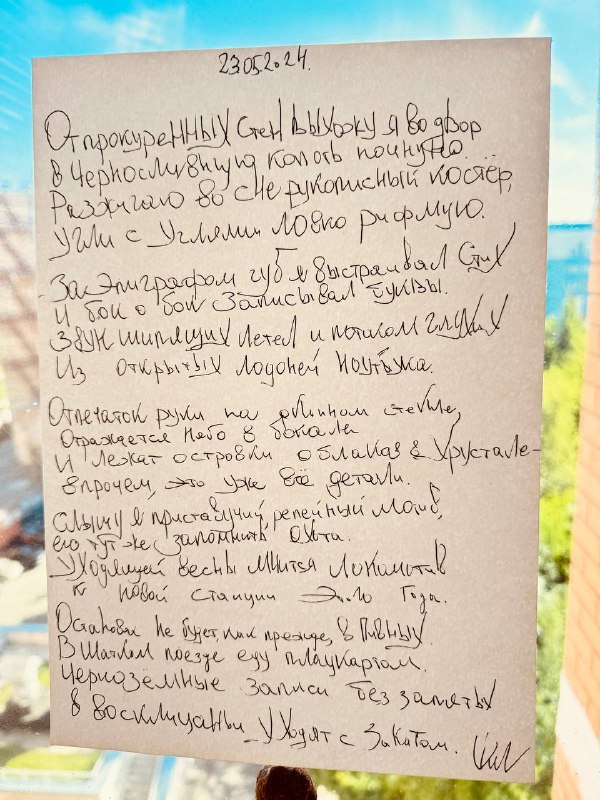 23.05.2024.
От прокуренных стен выхожу я во двор
в черносливную копоть поину.
Разжигаю во сне рукописный костёр,
Угли с углями ловко рифмую.
За эпиграфом губ я выстраивал стих
И бок о бок записывал буквы.
Звук шипящих летел и глухих
Из открытых лодоней ноутбука.
Отпечаток руки на стекле,
Отражается небо в бокале
И лежат островки облаков в хрустале-
впрочем, это уже всё детали.
слышу я приставучий, репейный мотив,
его тут же запомнить охота.
Уходящей весны мнится локомотив
к новой станции Этого года.
Остановок не будет, как прежде, в пивных.
В шатком поезде еду плацкартом.
Чернозёмные записи без запятых
в восклицаньи уходят с закатом.